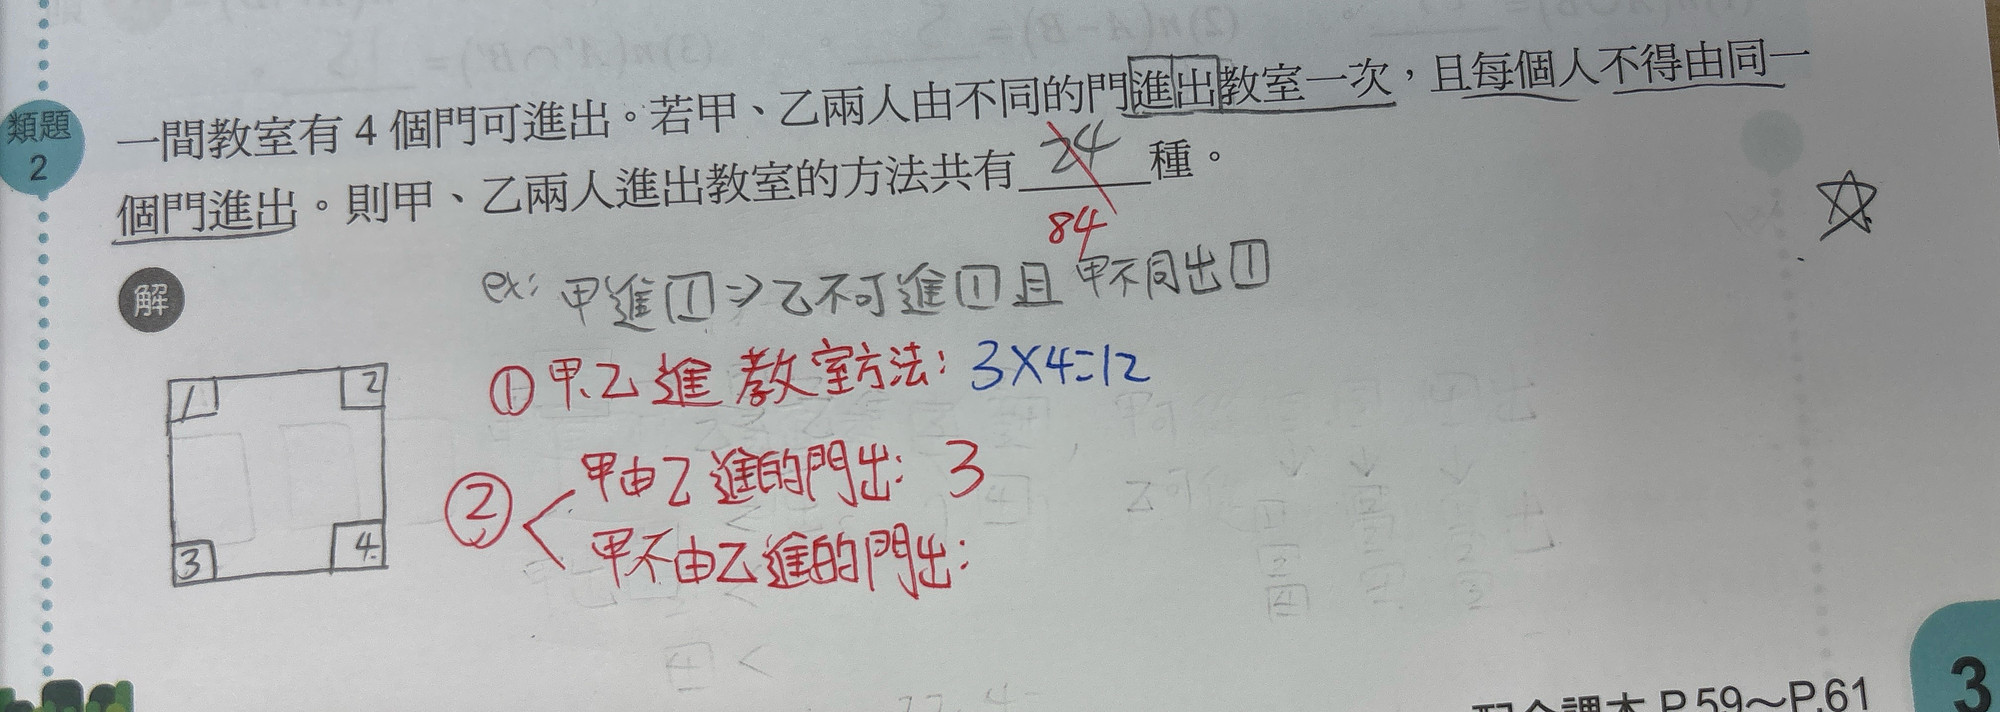 類題
2
一間教室有 4 個門可進出。若甲、乙兩人由不同的門進出教室一次，且每個人不得由同一
個門進出。則甲、乙兩人進出教室的方法共有 24 種。
84
解
ex: 甲進1⇒乙不可進1且甲不同出1
①甲.乙進教室方法: 3×4=12
1 2
3 4
② 甲由乙進的門出: 3
甲不由乙進的門出:
配合課本 P.59～P.61
3